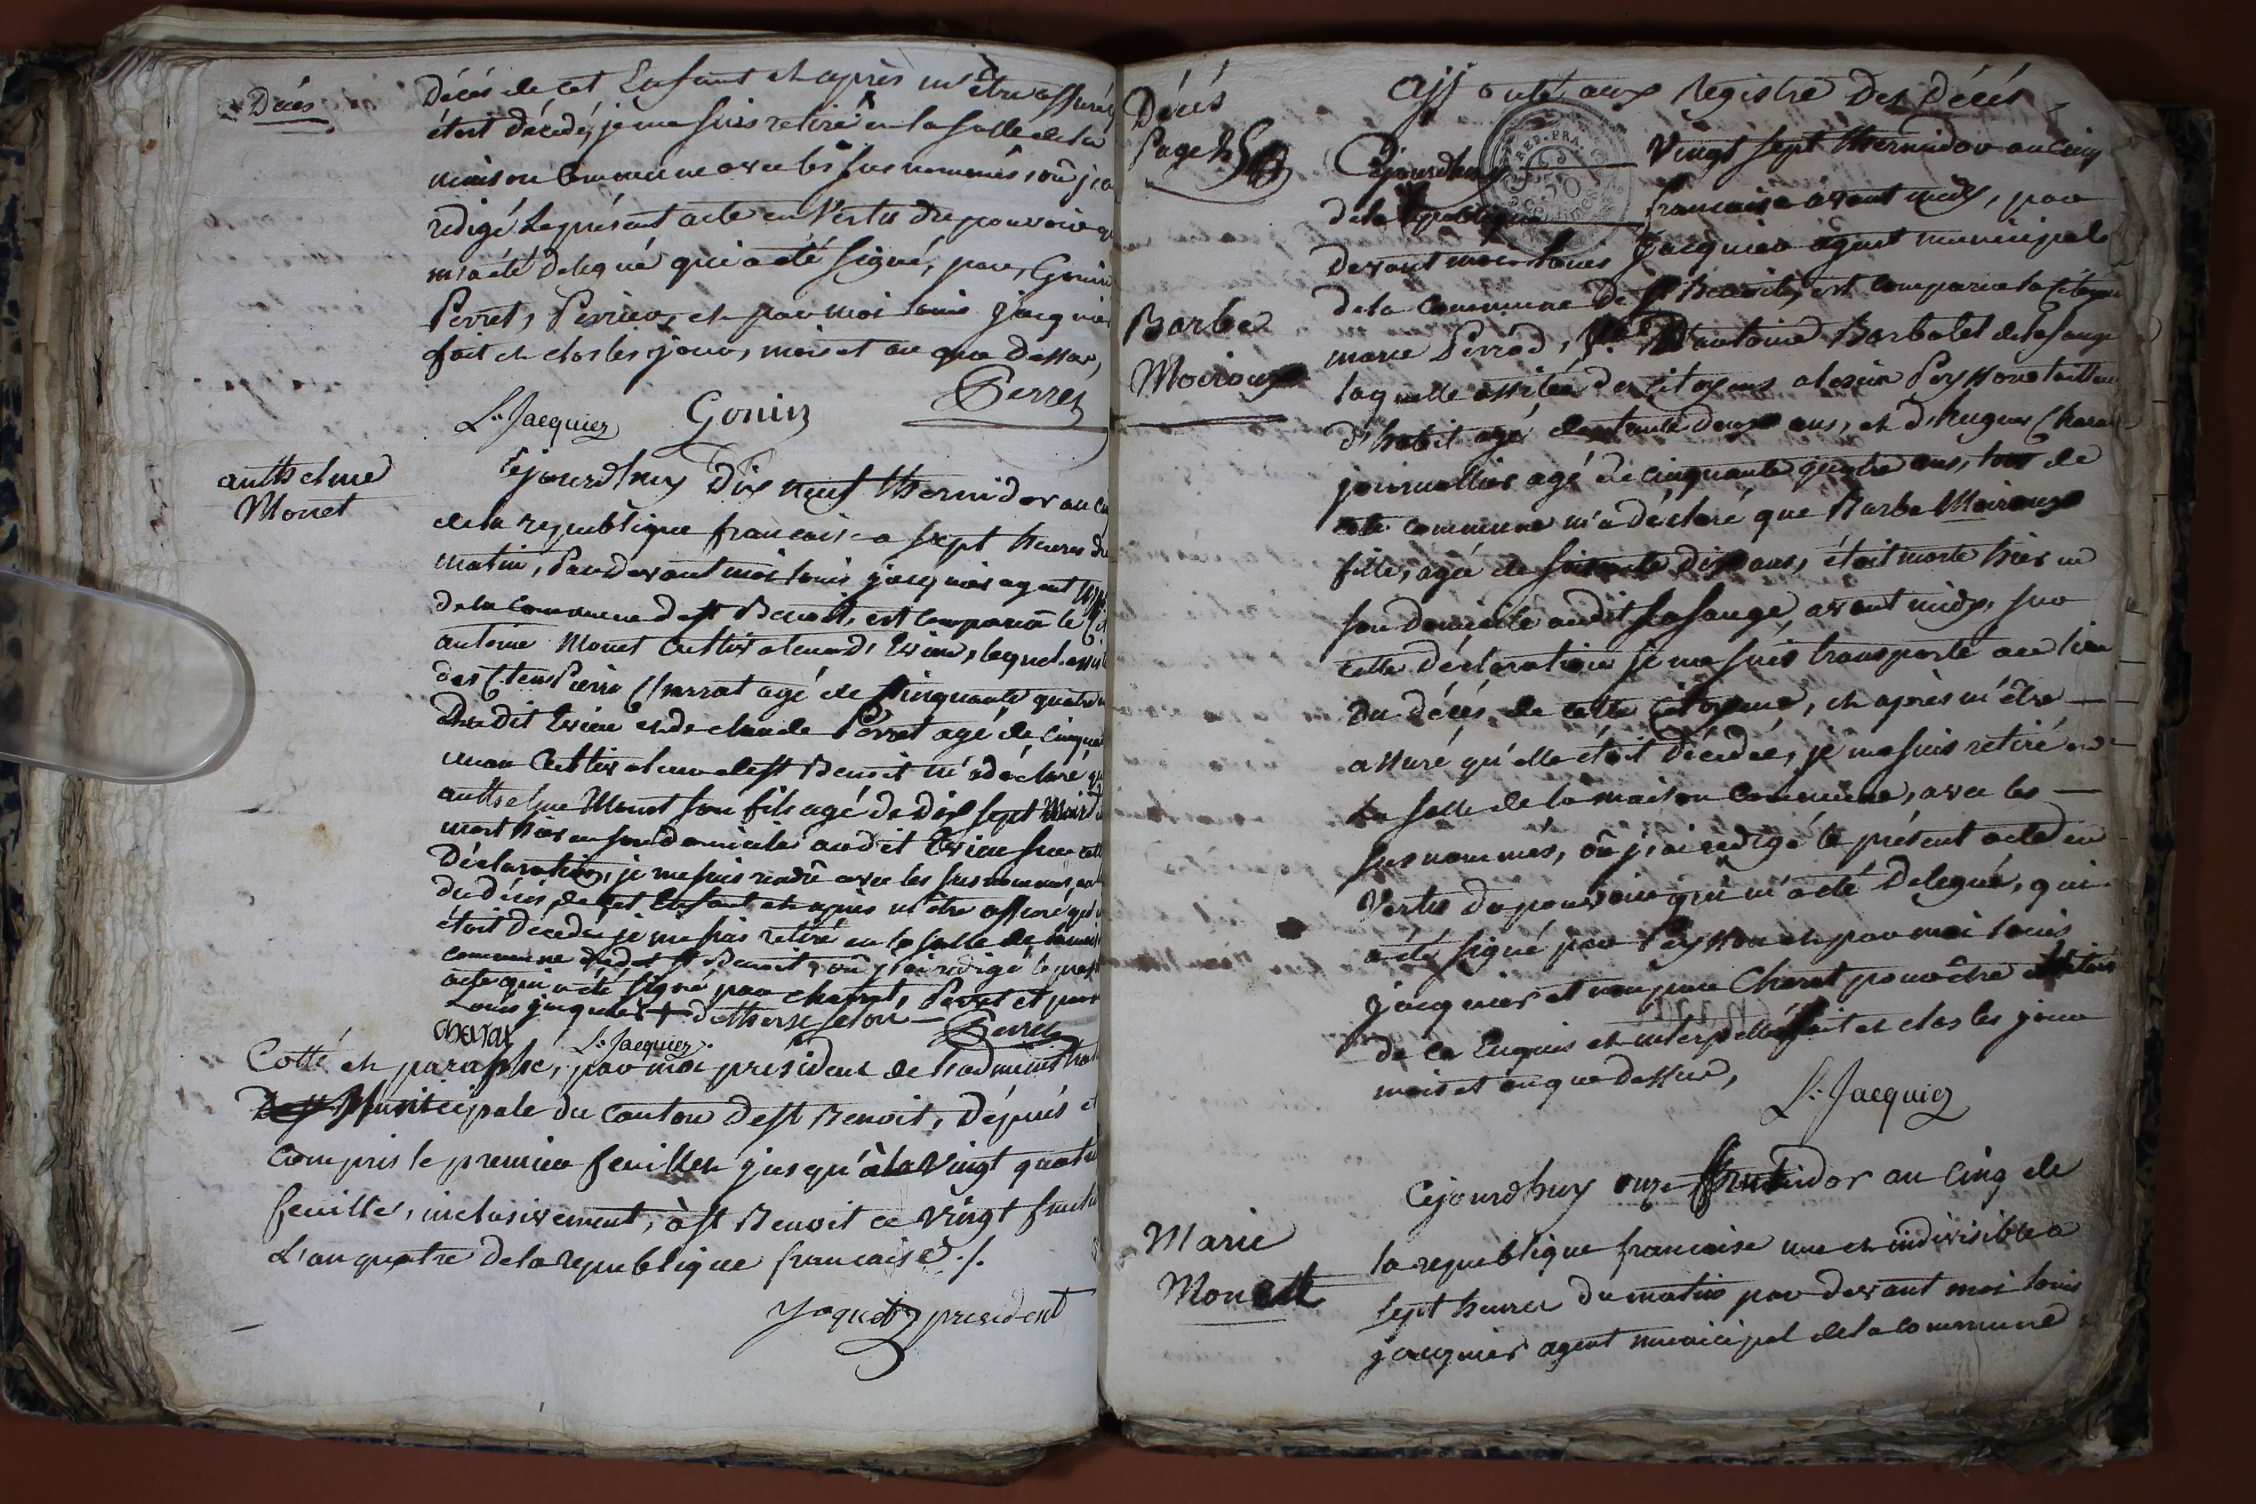 Décès
décès de cet Enfant et après m'être assuré
étoit décédé, je me suis retiré en la salle de la
maison Commune avec les sus nommés, où j'ai
redigé le présent acte en Vertu du pouvoir
m'a été délégué qui a été signé, par, Gonin
Perret, Perrier, et par moi Louis Jacquier
fait et clos les jour, mois et an que dessus,
Ls. Jacquier Gonin Perret
anthelme
Monet
Cejourdhuy Dix neuf thermidor an
de la republique francaise a sept heures du
matin, Pardevant moi Louis jacquier agent
de la commune de st Benoit, est comparu le
antoine Monet Cultivateur d'Evieu, lequel
des Cten Pierre Charrat agé de Cinquante quatre
Dudit Evieu et de claude Perret agé de Cinquante
un an Cultivateur de st Benoit m'a déclaré
anthelme Monet son fils agé de Dix sept Mois
mort hier en son domicile audit Evieu sur cette
Déclaration, je me suis rendû avec les sus nommés, au
du décès de cet Enfant et après m'être assuré qu'il
étoit decedé je me suis retiré en la salle de la maison
commune dudit st Benoit, où j'ai redigé le présent
acte qui a été signé par charrat, Perret et par
Louis jacquier
charat Ls. Jacquier Perret
Cotté et paraphé, par moi president de l'administration
Municipale du Canton de st Benoit, Dépuis et
Compris le premier feuillet jusqu'à la Vingt quatre
feuille, inclusivement, à st Benoit ce Vingt
L'an quatre de la republique francaise ./.
Jaquet president
Décès
Page
ajj outé aux Registre des décès
Cejourdhuy Vingt sept thermidor an Cinq
de la republique francaise avant midy, par
devant moi Louis Jacquier agent municipal
Barbe
Moiroux
de la Commune de st Benoit, est comparue la Citoyenne
marie Perrod, d'antoine Barbolet de Lasauge
laquelle assistée des Citoyens alexis Peysson tailleur
d'habit agé de trente deux ans, et d'hugues Charat
journallier agé de Cinquante quatre ans, tous de
cette commune m'a déclaré que Barbe Moiroux
fille, agée de soixante Dix ans, étoit morte hier en
son domicile audit Lasauge, avant midy, sur
cette déclaration je me suis transporté au lieu
du décès de cette Citoyenne, et après m'être
assuré qu'elle étoit décédée, je me suis retiré en
la salle de la maison Commune, avec les
sus nommés, où j'ai redigé le présent acte en
Vertu du pouvoir qui m'a été delegué, qui
a été signé par Peysson et par moi Louis
jacquier et non par Charat pour être illitéré
de ce Enquis et interpellé fait et clos les jour
mois et an que dessus,
Ls. Jacquier
Marie
Monet
Cejourdhuy onze fructidor an Cinq de
la republique francaise une et indivisible a
sept heures du matin par devant moi Louis
jacquier agent municipal de la commune